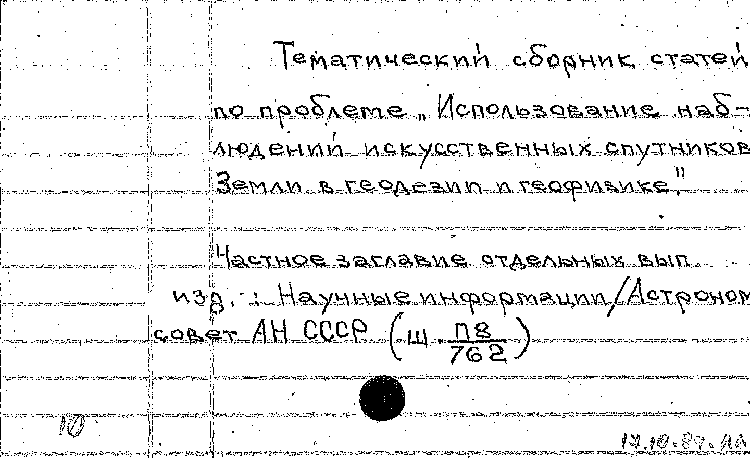 Тематический сборник статей
по проблеме „Использование наб-
людений искусственных спутников
Земли в геодезии и геофизике"
Частное заглавие отдельных вып.
изд. : Научные информации/Астроном.
совет АН СССР (Ш П8/762)
10
17.10.87.